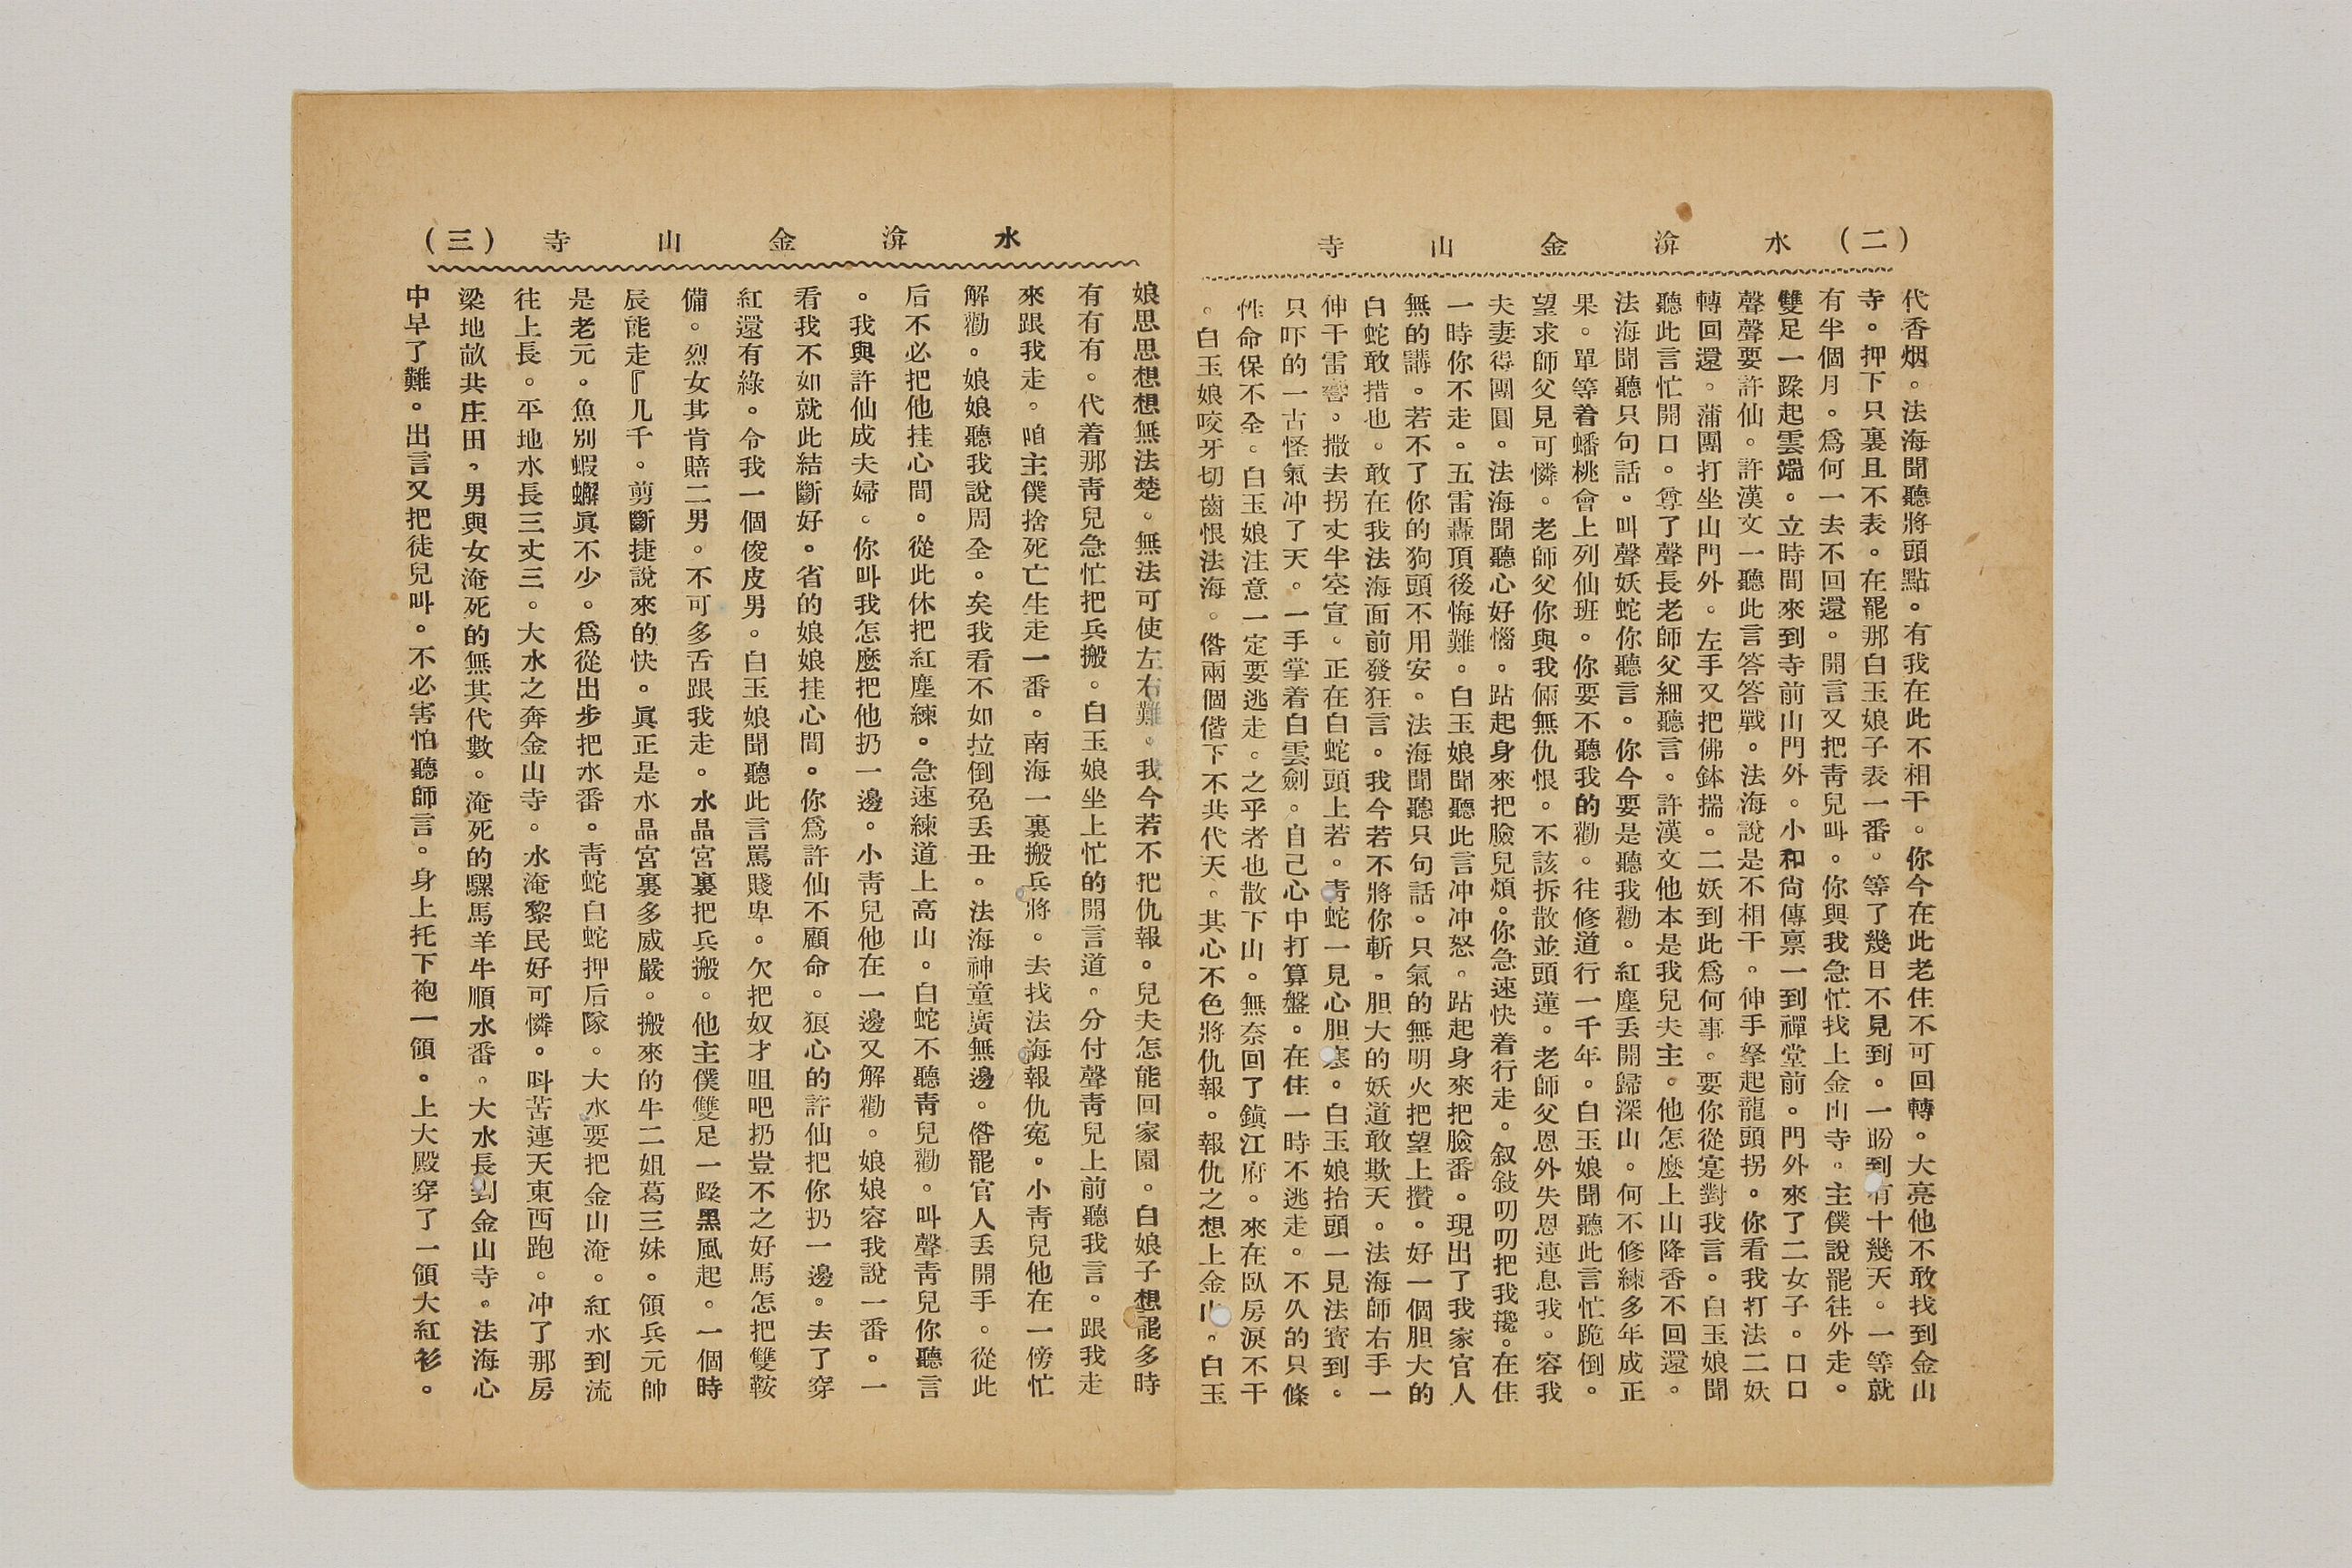 (二) 水渰金山寺
代香烟。法海聞聽將頭點。有我在此不相干。你今在此老住不可回轉。大亮他不敢找到金山
寺。押下只裏且不表。在罷那白玉娘子表一番。等了幾日不見到。一盼到有十幾天。一等就
有半個月。爲何一去不回還。開言又把靑兒叫。你與我急忙找上金山寺。主僕說罷往外走。
雙足一跺起雲端。立時間來到寺前山門外。小和尙傳禀一到禪堂前。門外來了二女子。口口
聲聲要許仙。許漢文一聽此言答答戰。法海說是不相干。伸手拏起龍頭拐。你看我打法二妖
轉回還。蒲團打坐山門外。左手又把佛鉢揣。二妖到此爲何事。要你從寔對我言。白玉娘聞
聽此言忙開口。尊了聲長老師父細聽言。許漢文他本是我兒夫主。他怎麼上山降香不回還。
法海聞聽只句話。叫聲妖蛇你聽言。你今要是聽我勸。紅塵丢開歸深山。何不修練多年成正
果。單等着蟠桃會上列仙班。你要不聽我的勸。往修道行一千年。白玉娘聞聽此言忙跪倒。
望求師父見可憐。老師父你與我倆無仇恨。不該拆散並頭蓮。老師父恩外失恩連息我。容我
夫妻得團圓。法海聞聽心好惱。跕起身來把臉兒煩。你急速快着行走。叙敍叨叨把我攙。在住
一時你不走。五雷轟頂後悔難。白玉娘聞聽此言冲冲怒。跕起身來把臉番。現出了我家官人
無的講。若不了你的狗頭不用安。法海聞聽只句話。只氣的無明火把望上攢。好一個胆大的
白蛇敢措也。敢在我法海面前發狂言。我今若不將你斬。胆大的妖道敢欺天。法海師右手一
伸干雷響。撒去拐丈半空宣。正在白蛇頭上若。靑蛇一見心胆寒。白玉娘抬頭一見法寳到。
只吓的一古怪氣冲了天。一手掌着白雲劍。自己心中打算盤。在住一時不逃走。不久的只條
性命保不全。白玉娘注意一定要逃走。之乎者也散下山。無奈回了鎭江府。來在臥房淚不干
。白玉娘咬牙切齒恨法海。偺兩個偕下不共代天。其心不色將仇報。報仇之想上金山。白玉
水渰金山寺 (三)
娘思思想想無法楚。無法可使左右難。我今若不把仇報。兒夫怎能回家園。白娘子想罷多時
有有有。代着那靑兒急忙把兵搬。白玉娘坐上忙的開言道。分付聲靑兒上前聽我言。跟我走
來跟我走。咱主僕捨死亡生走一番。南海一裏搬兵將。去找法海報仇寃。小靑兒他在一傍忙
解勸。娘娘聽我說周全。矣我看不如拉倒免丢丑。法海神童廣無邊。偺罷官人丢開手。從此
后不必把他挂心間。從此休把紅塵練。急速練道上高山。白蛇不聽靑兒勸。叫聲靑兒你聽言
。我與許仙成夫婦。你叫我怎麼把他扔一邊。小靑兒他在一邊又解勸。娘娘容我說一番。一
看我不如就此結斷好。省的娘娘挂心間。你爲許仙不顧命。狠心的許仙把你扔一邊。去了穿
紅還有綠。令我一個俊皮男。白玉娘聞聽此言駡賤卑。欠把奴才咀吧扔豈不之好馬怎把雙鞍
備。烈女其肯賠二男。不可多舌跟我走。水晶宮裏把兵搬。他主僕雙足一跺黑風起。一個時
辰能走『几千。剪斷捷說來的快。眞正是水晶宮裏多威嚴。搬來的牛二姐葛三妹。領兵元帥
是老元。魚別蝦蠏眞不少。爲從出步把水番。靑蛇白蛇押后隊。大水要把金山淹。紅水到流
往上長。平地水長三丈三。大水之奔金山寺。水淹黎民好可憐。呌苦連天東西跑。冲了那房
梁地畝共庄田，男與女淹死的無其代數。淹死的騾馬羊牛順水番。大水長到金山寺。法海心
中早了難。出言又把徒兒叫。不必害怕聽師言。身上托下袍一領。上大殿穿了一領大紅衫。